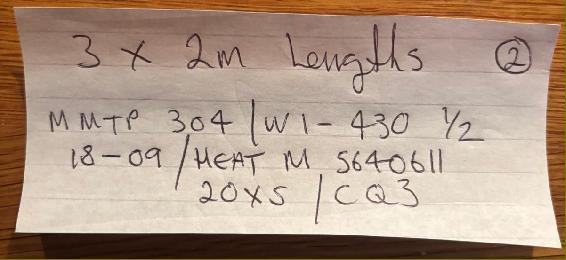 3 x 2m Lengths ②
MMTP 304 / W1-430 1/2
18-09 / HEAT M 5640611
20x5 / CQ3